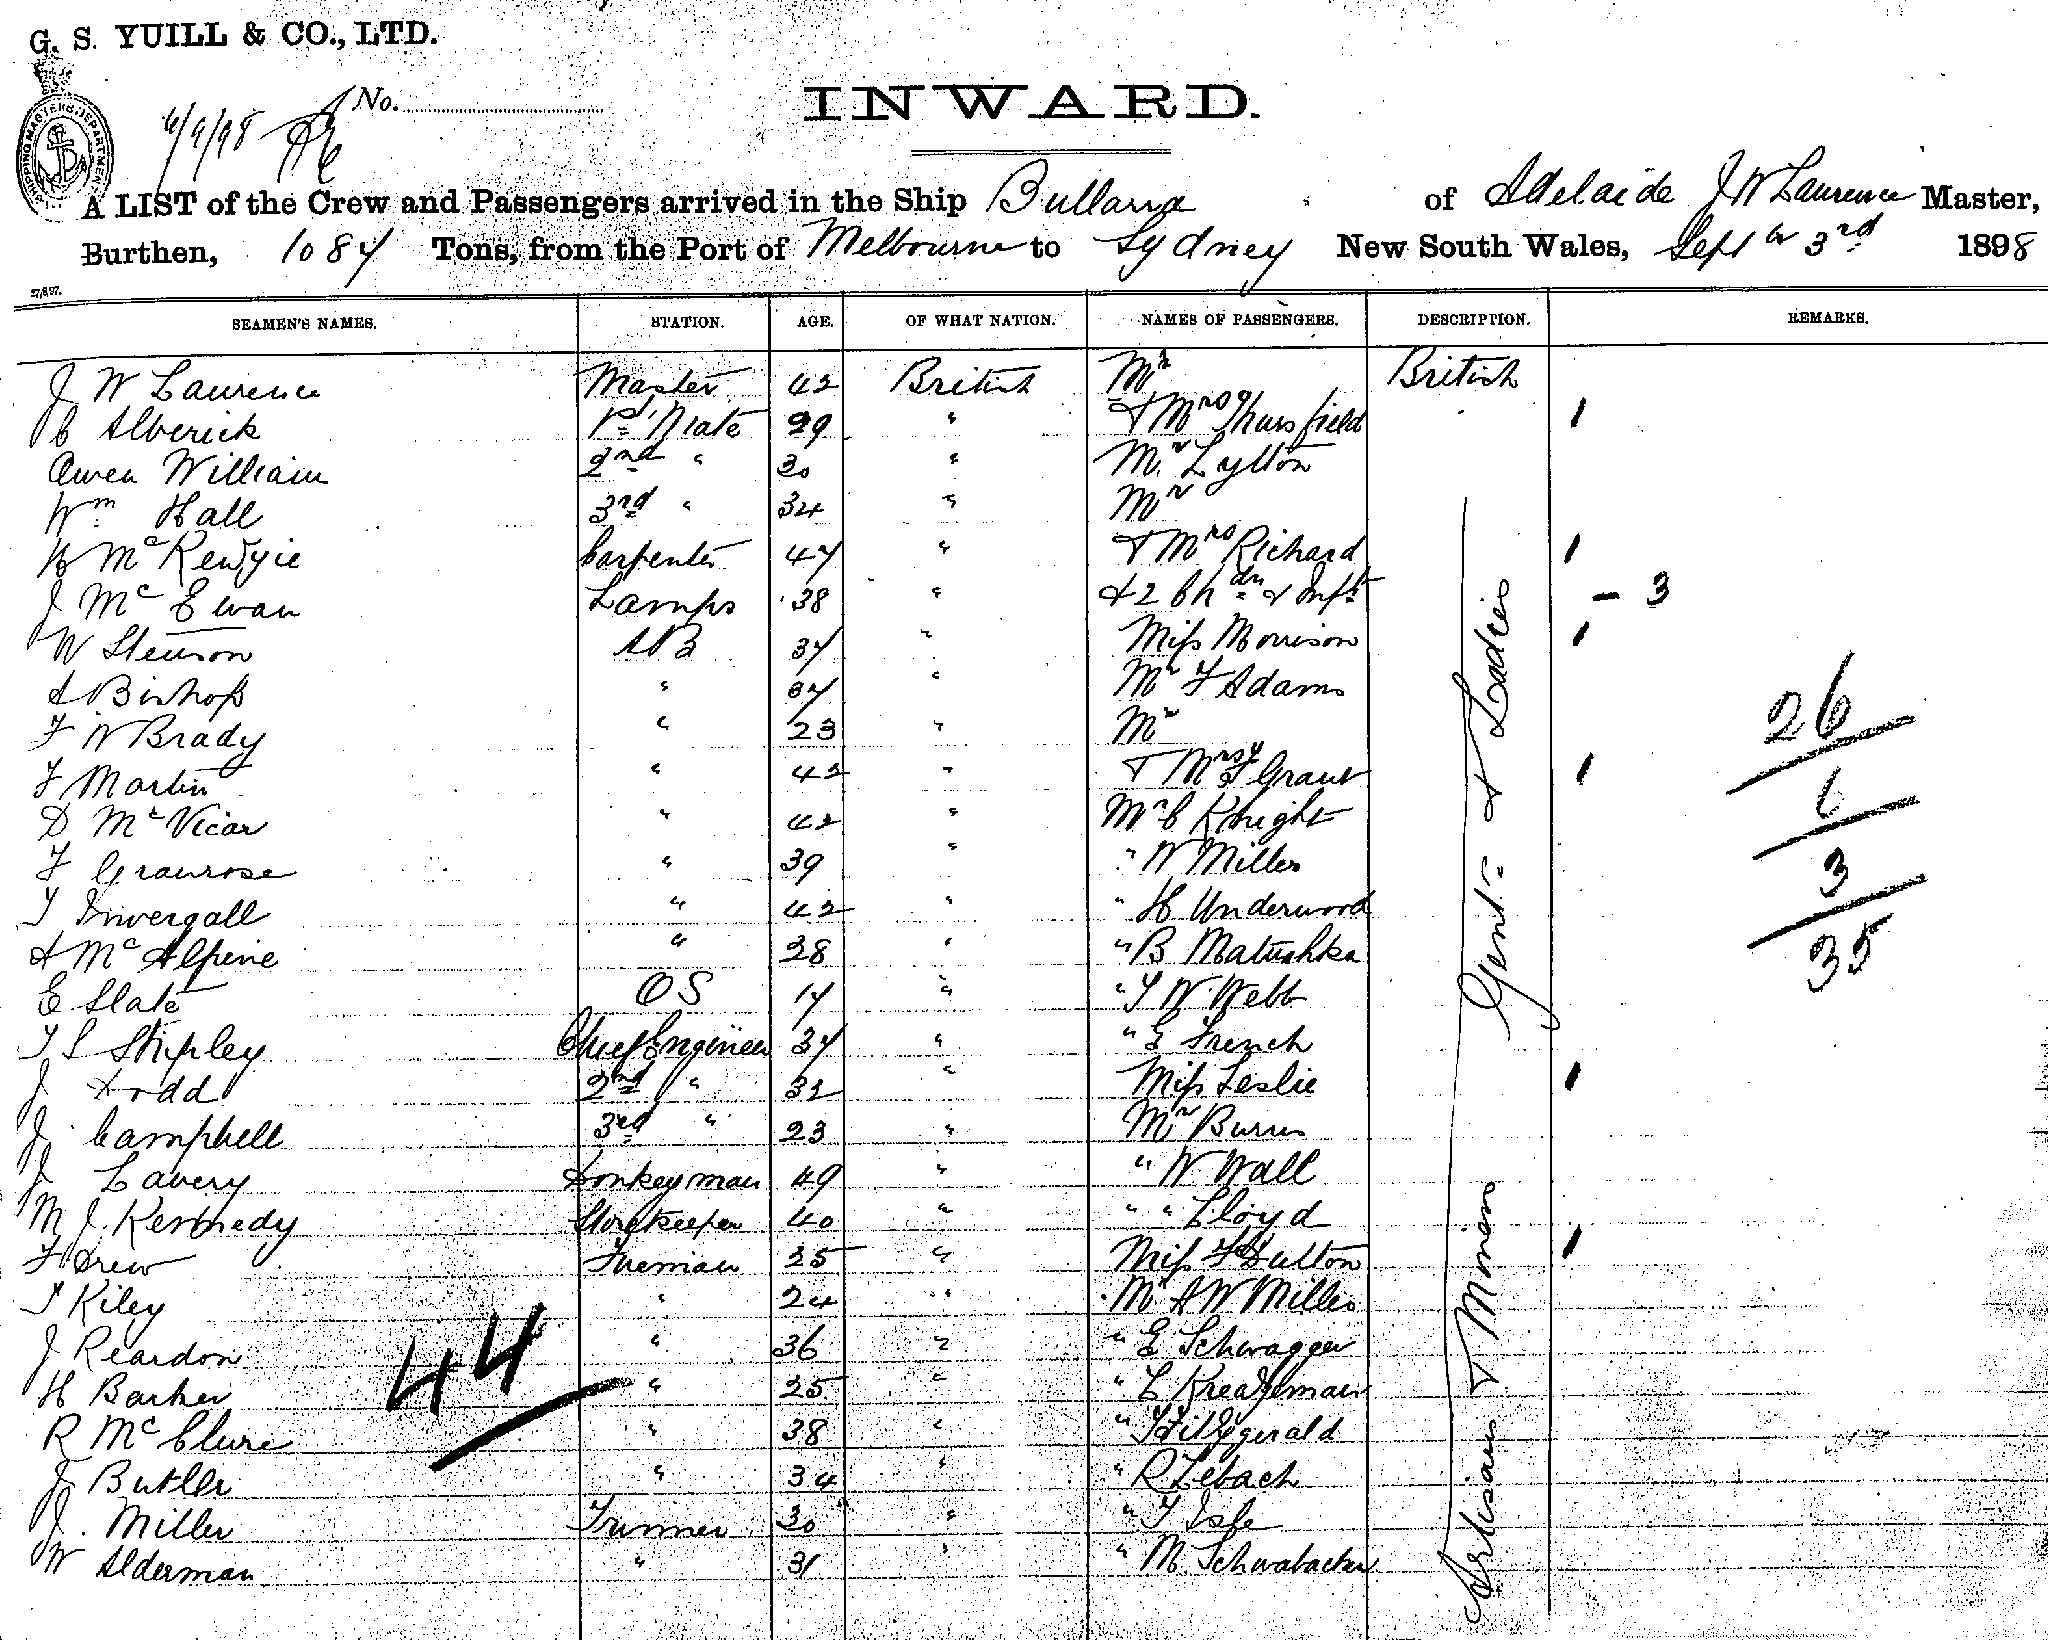 G. S. YUILL & CO., LTD.
SHIPPING MASTERS DEPARTMENT
6/9/98
No.
INWARD.
A LIST of the Crew and Passengers arrived in the Ship Bullarra of Adelaide J W Laurence Master,
Burthen, 1084 Tons, from the Port of Melbourne to Sydney New South Wales, Septbr 3rd 1898
SEAMEN'S NAMES. STATION. AGE. OF WHAT NATION. NAMES OF PASSENGERS. DESCRIPTION. REMARKS.
J W Laurence Master 42 British Mr British
C Alverick 1st Mate 29 " & Mrs Thursfield 1
Owen William 2nd " 30 " Mr Lytton
Wm Hall 3rd " 34 " Mr
Mc Kenyie Carpenter 47 " & Mrs Richard 1
J Mc Ewan Lamps 38 " & 2 Chdn & Inft - 3
W Stenson AB 37 " Miss Morrison 1
A Bishop " 37 " Mr F Adams
F W Brady " 23 " Mr
F Martin " 42 " & Mrs Grant 1
D Mc Vicar " 42 " Mr C Knight
F Granrose " 39 " " W Miller
T Invergall " 42 " " H Underwood
A Mc Alpine " 28 " " B Matushka
E Slate OS 17 " " T W Webb
T S Shipley Chief Engineer 37 " " E French
J Dodd 2nd " 32 " Miss Leslie 1
J Campbell 3rd " 23 " Mr Burns
J Lavery Donkeyman 49 " " W Wall
M J Kennedy Storekeeper 40 " " " Lloyd
F Drew Fireman 25 " Miss Dutton 1
T Kiley " 24 " Mr A W Miller
J Reardon " 36 " " E Schwager
H Barker " 25 " " L Kreayeman
R Mc Clure " 38 " " Fitzgerald
J Butler " 34 " " R Zebach
J. Miller Trimmer 30 " " T Isle
W Alderman " 31 " " M Schwabacher
Artisans & Miners Gents & Ladies
26
6
3
35
44